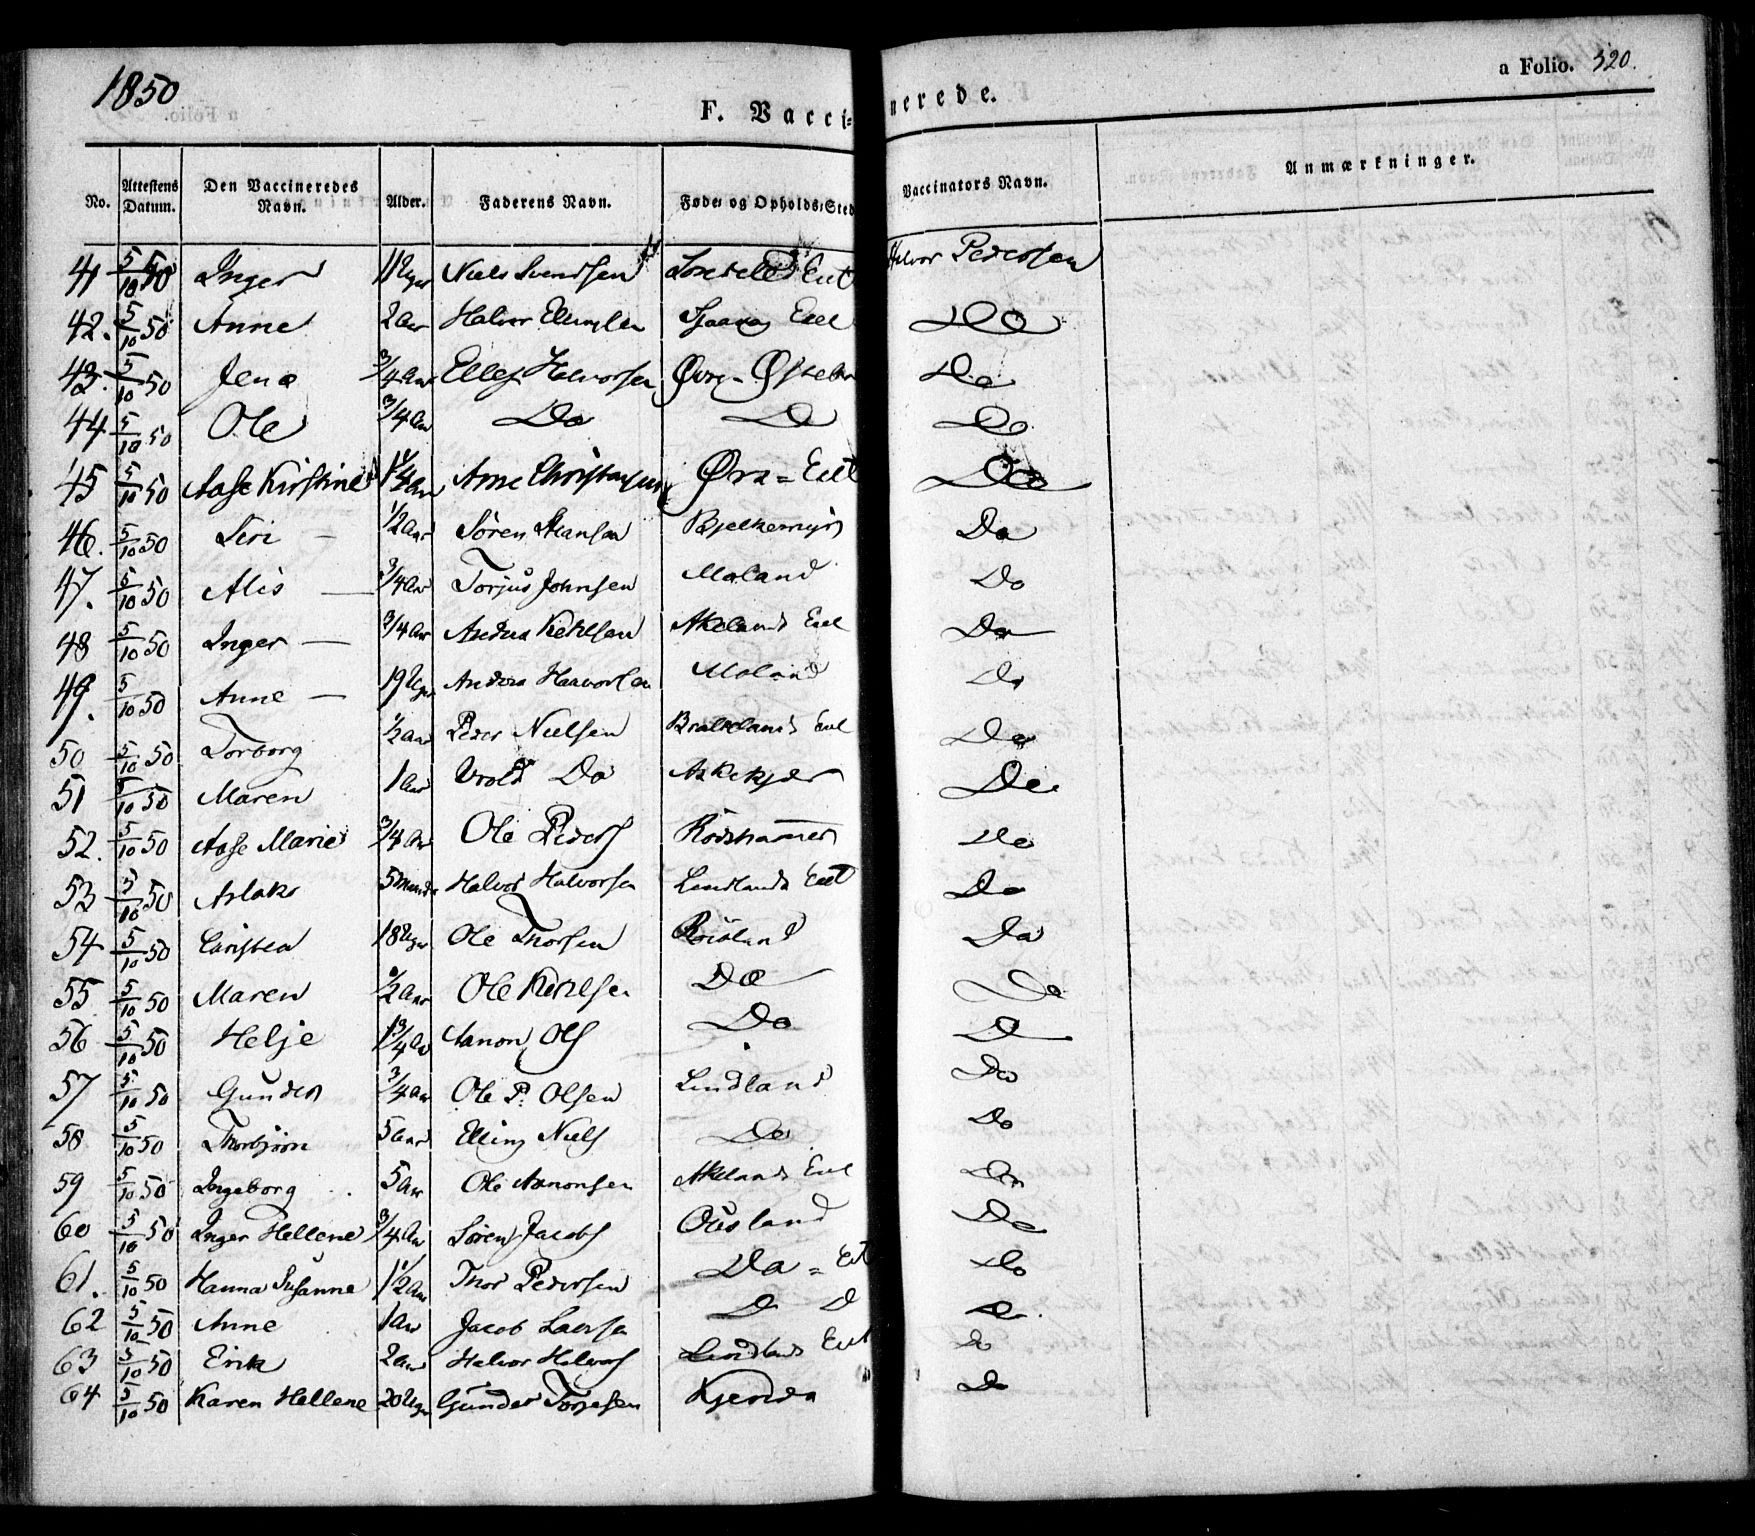 1850
a Folio. 320.
F. Vaccinerede.
No. Attestens Datum. Den Vaccineredes Navn. Alder. Faderens Navn. Føde- og Opholds-Sted Vaccinators Navn. Anmærkninger.
41 5/10 50 Inger 11 Uger Niels Svendsen Eiet Halvor Pedersen
42. 5/10 50 Anne 2 Aar Halvor Ellingsen Eiet Do
43. 5/10 50 Jens 3/4 Aar Ellef Halvorsen Øvre Do
44 5/10 50 Ole 3/4 Aar Do D Do
45 5/10 50 Aase Kirstine 1 1/2 Aar Arne Christensen Eiet Do
46. 5/10 50 Siri 1/2 Aar Søren Hansen Bjelkemyr Do
47. 5/10 50 Alis 3/4 Aar Torjus Johnsen Moland Do
48 5/10 50 Inger 3/4 Aar Anders Ketilsen Akelands Eiet Do
49. 5/10 50 Anne 19 Uger Anders Haavorsen Moland Do
50 5/10 50 Torborg 1/2 Aar Peder Nielsen Eiet Do
51 5/10 50 Maren 1 Aar Wrold Do Askekjær Do
52. 5/10 50 Aase Marie 3/4 Aar Ole Peders Rødshammer Do
53 5/10 50 Aslak 5 Maaneder Halvor Halvorsen Lindlands Eiet Do
54 5/10 50 Christen 18 Uger Ole Thorsen Røisland Do
55 5/10 50 Maren 1/2 Aar Ole Ketilsen Do Do
56 5/10 50 Helje 1 3/4 Aar Aanon Ols Do D
57 5/10 50 Gunder 3/4 Aar Ole P. Olsen Lindland Do
58 5/10 50 Thorbjørn 5 Aar Elling Niels Do Do
59 5/10 50 Ingeborg 5 Aar Ole Aanonsen Akelands Eiet Do
60 5/10 50 Inger Hellene 3/4 Aar Søren Jacobs Ousland Do
61. 5/10 50 Hanna Susanne 1 1/2 Aar Thor Pedersen Do = Eiet Do
62 5/10 50 Anne 1 Aar Jacob Larsen D D D
63 5/10 50 Erik 2 Aar Halvor Halvors Lindlands Eiet Do
64 5/10 50 Karen Hellene 20 Uger Gunder Torjesen Do